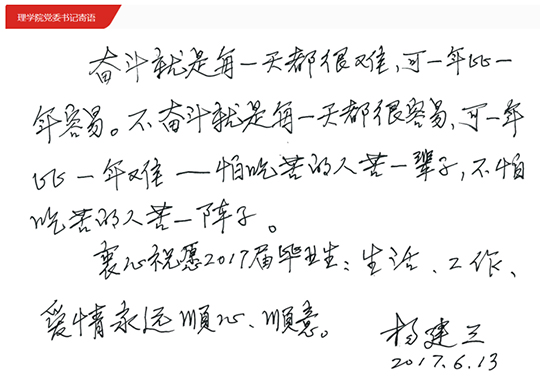 理学院党委书记寄语
奋斗就是每一天都很难,可一年比一
年容易。不奋斗就是每一天都很容易,可一年
比一年难——怕吃苦的人苦一辈子,不怕
吃苦的人苦一阵子。
衷心祝愿2017届毕业生:生活、工作、
爱情永远顺心、顺意。
杨建立
2017.6.13